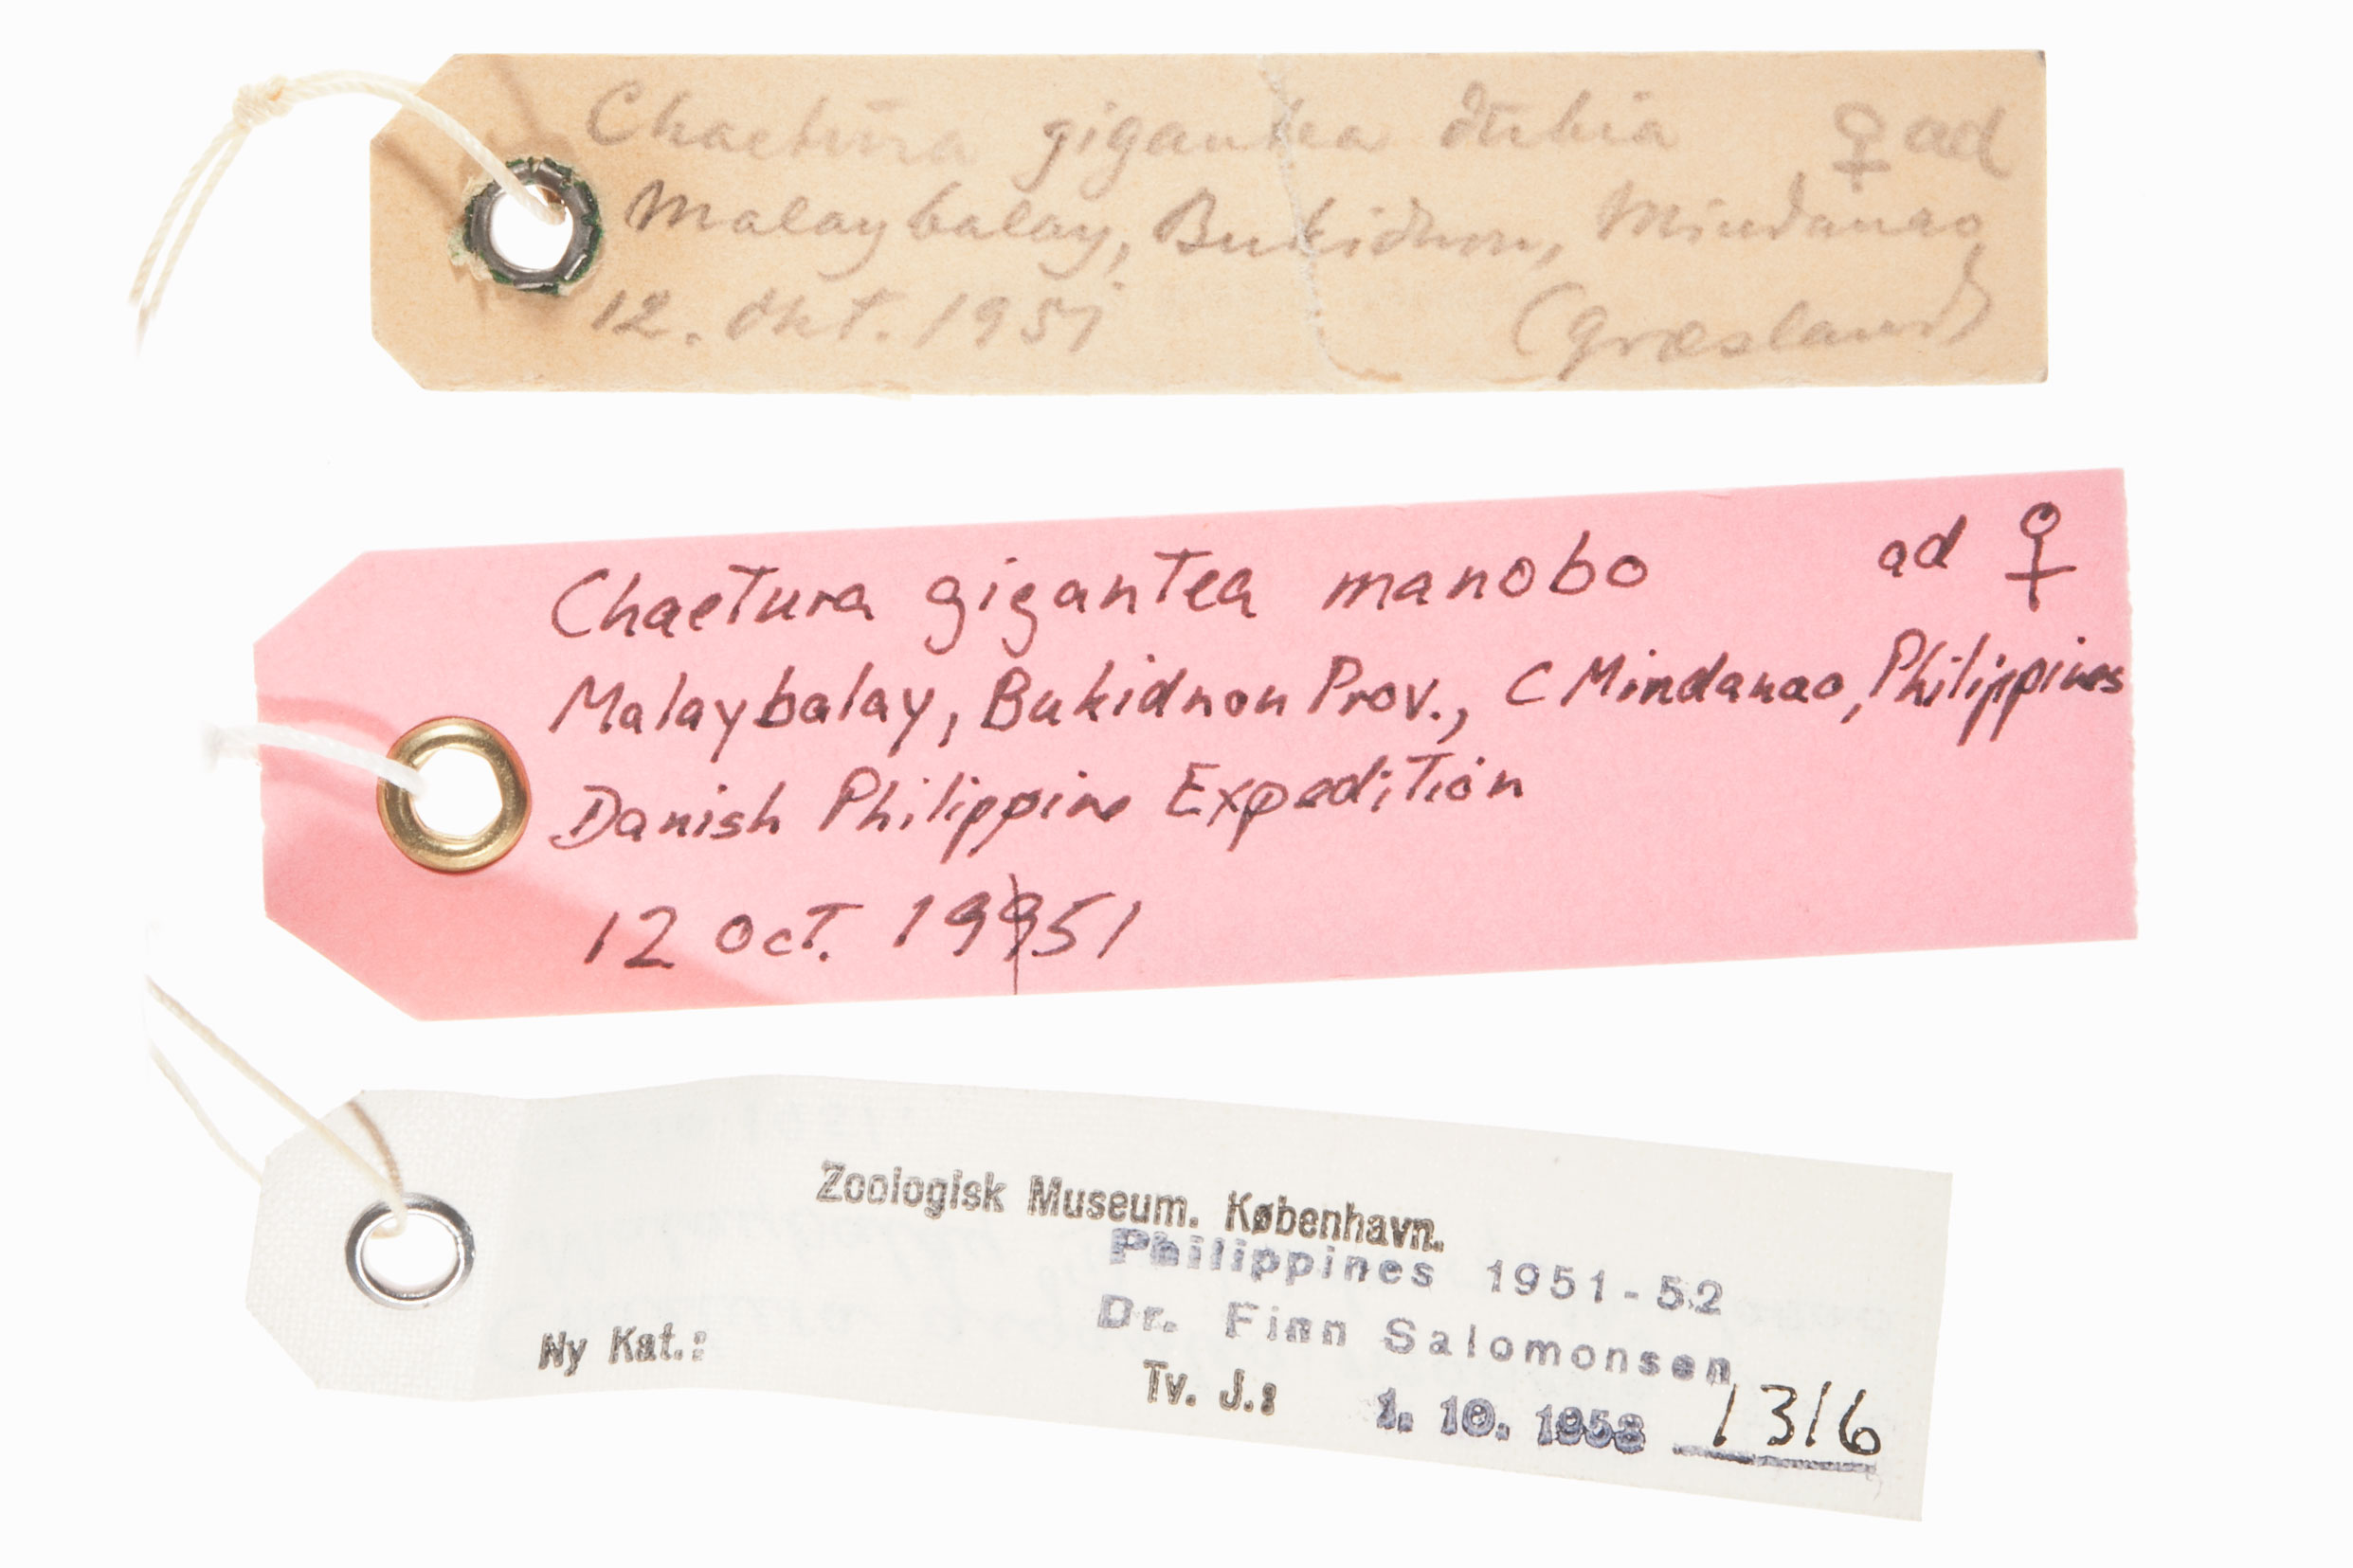 Chaetura gigantea dubia ♀ ad
Malaybalay, Bukidnon, Mindanao
12. Okt. 1951 (græsland)
Chaetura gigantea manobo ad ♀
Malaybalay, Bukidnon Prov., C Mindanao, Philippines
Danish Philippine Expedition
12 Oct. 19951
Zoologisk Museum. København.
Philippines 1951-52
Dr. Finn Salomonsen
Ny Kat.: Tv. J.: 1. 10. 1953 1316